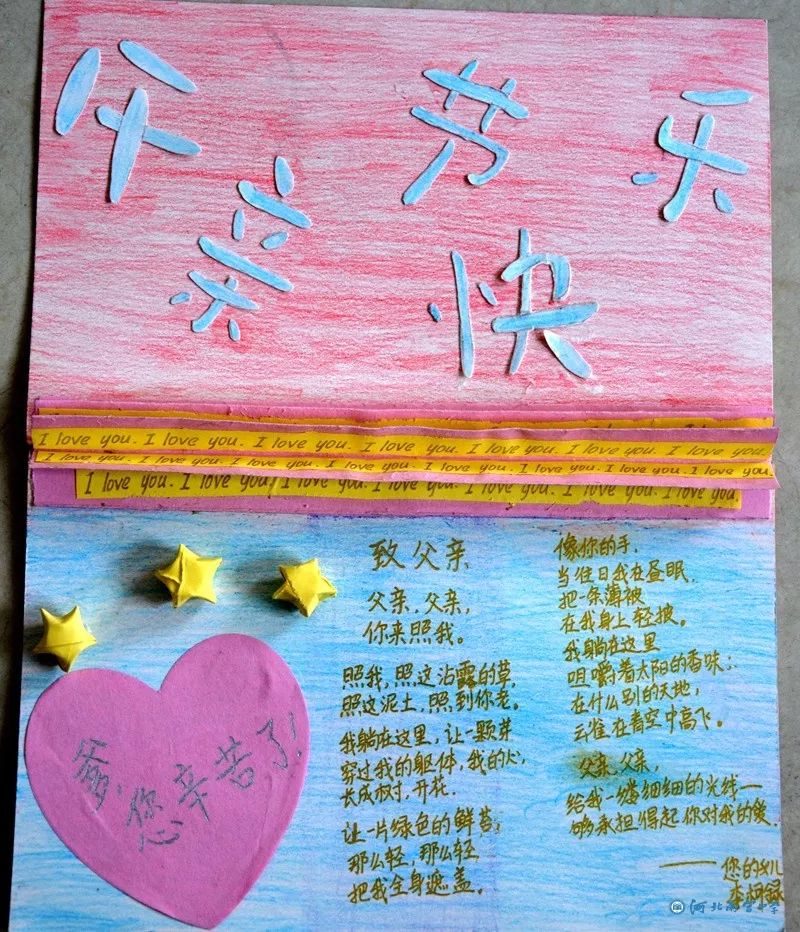 父亲节快乐
I love you. I love you. I love you. I love you. I love you. I love you. I love you.
I love you. I love you. I love you. I love you. I love you. I love you. I love you. I love you
I love you. I love you. I love you. I love you. I love you. I love you. I love you.
爸,您辛苦了!
致父亲
父亲,父亲,
你来照我。
照我,照这沾露的草,
照这泥土,照到你老。
我躺在这里,让一颗芽
穿过我的躯体,我的心,
长成树,开花.
让一片绿色的鲜苔,
那么轻,那么轻
把我全身遮盖。
像你的手,
当往日我在昼眠,
把一条薄被
在我身上轻披。
我躺在这里
咀嚼着太阳的香味;
在什么别的天地,
云雀在青空中高飞。
父亲,父亲,
给我一缕细细的光线—
够承担得起你对我的爱.
——您的女儿
李柯
河北南宫中学